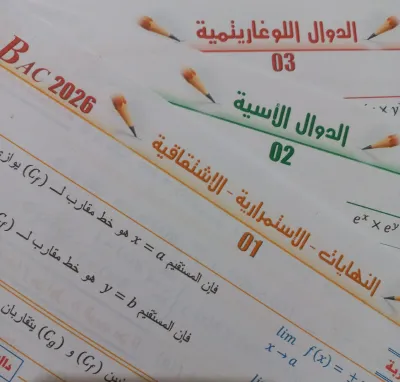 الدوال اللوغاريتمية
03
BAC 2026
الدوال الأسية
02
eˣ × eʸ
النهايات - الاستمرارية - الاشتقاقية
01
فإن المستقيم x = a هو خط مقارب لـ (Cf) يوازي
فإن المستقيم y = b هو خط مقارب لـ (Cf)
lim f(x) = +
x → a
(Cf) و (Cg) يتقاربان